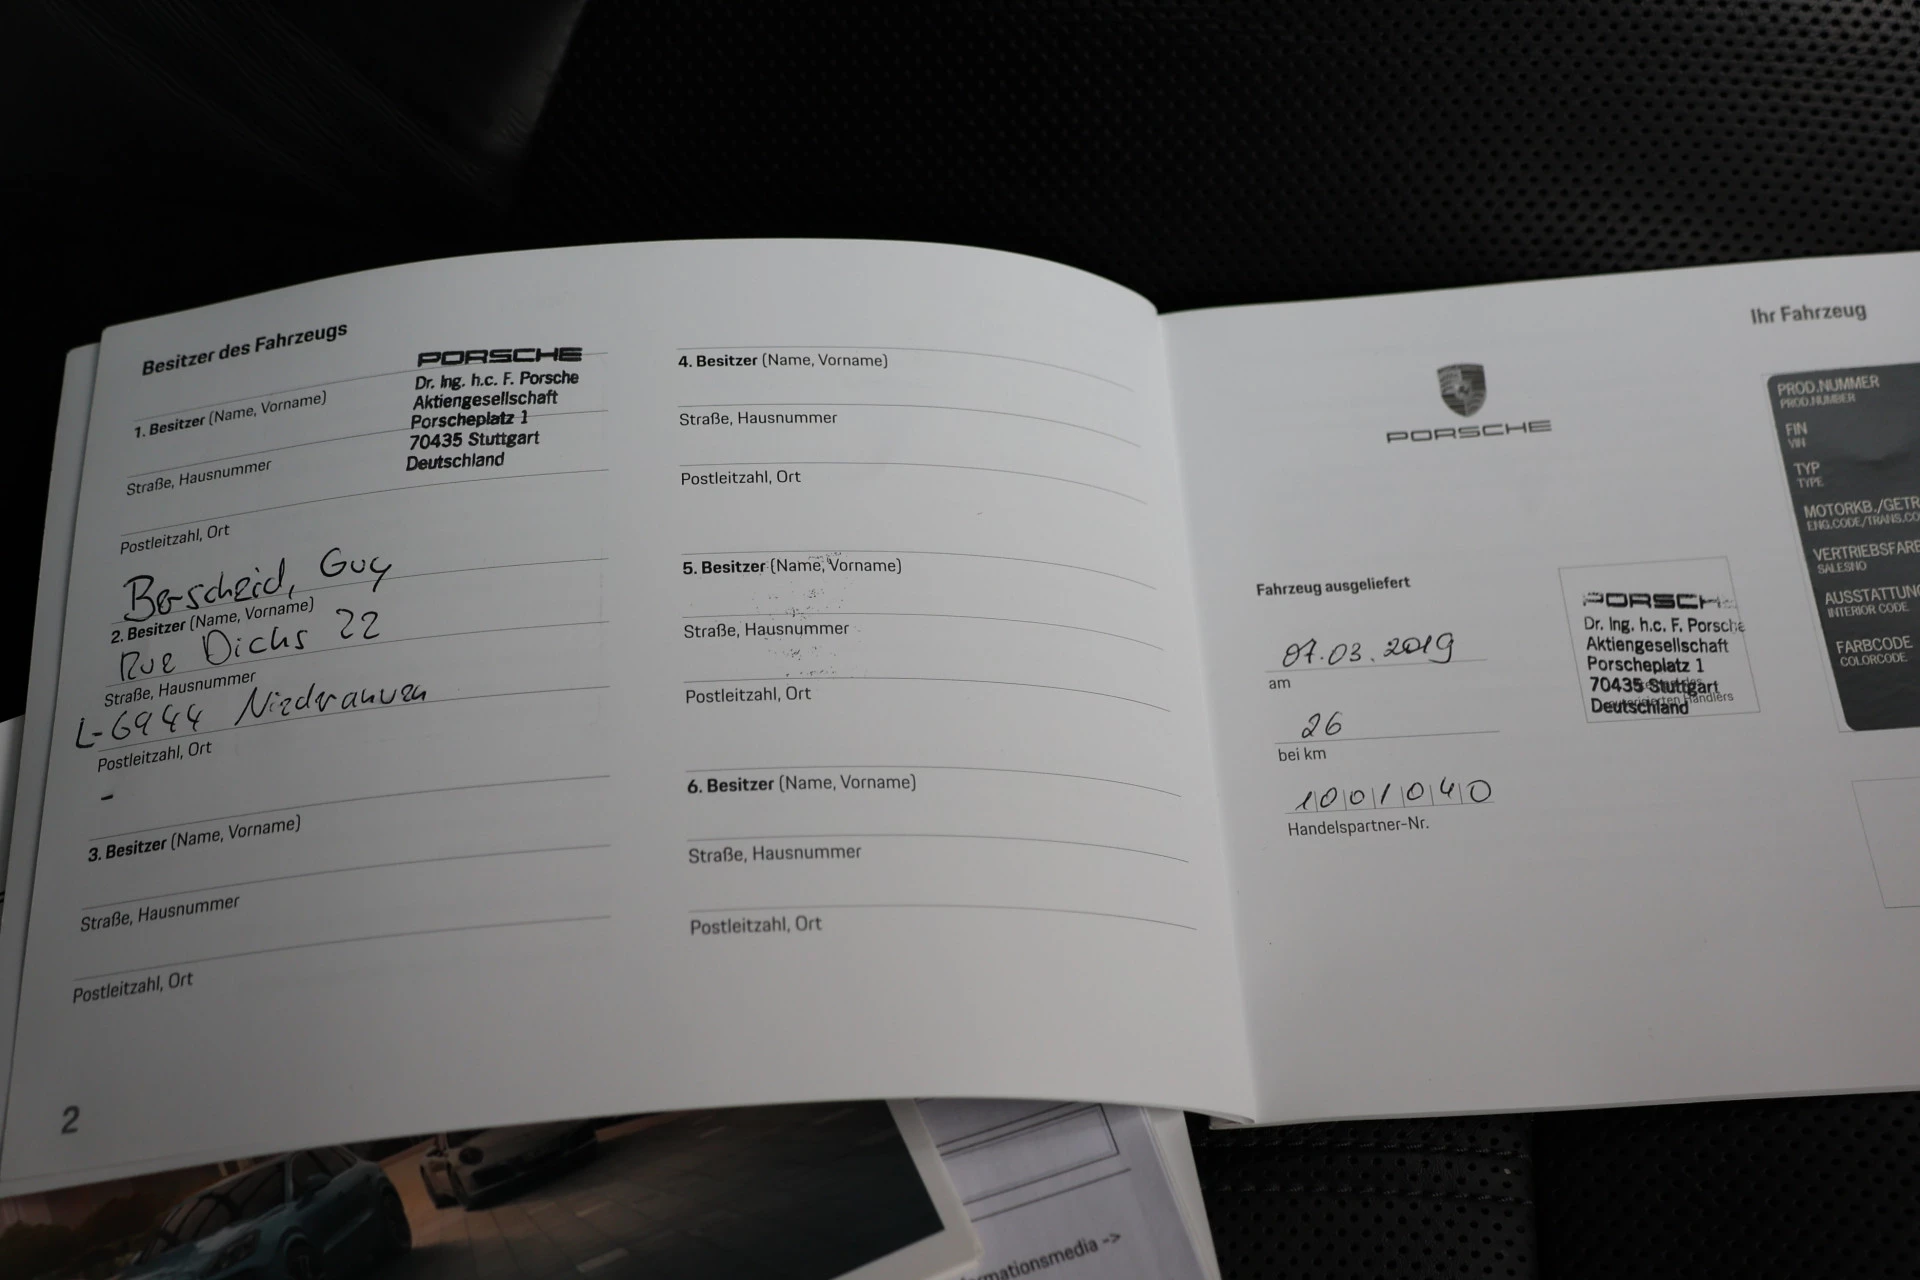 Besitzer des Fahrzeugs
PORSCHE
Dr. Ing. h.c. F. Porsche
Aktiengesellschaft
Porscheplatz 1
70435 Stuttgart
Deutschland
1. Besitzer (Name, Vorname)
Straße, Hausnummer
Postleitzahl, Ort
Berscheid, Guy
2. Besitzer (Name, Vorname)
Rue Dicks 22
Straße, Hausnummer
L-6944 Niederanven
Postleitzahl, Ort
-
3. Besitzer (Name, Vorname)
Straße, Hausnummer
Postleitzahl, Ort
2
4. Besitzer (Name, Vorname)
Straße, Hausnummer
Postleitzahl, Ort
5. Besitzer (Name, Vorname)
Straße, Hausnummer
Postleitzahl, Ort
6. Besitzer (Name, Vorname)
Straße, Hausnummer
Postleitzahl, Ort
Ihr Fahrzeug
PORSCHE
Fahrzeug ausgeliefert
07.03.2019
am
26
bei km
1001040
Handelspartner-Nr.
PORSCHE
Dr. Ing. h.c. F. Porsche
Aktiengesellschaft
Porscheplatz 1
70435 Stuttgart
Deutschland
Händlers
PROD.NUMMER
PROD.NUMBER
FIN
VIN
TYP
TYPE
MOTORKB./GETR
ENG.CODE/TRANS.CO
VERTRIEBSFARB
SALESNO
AUSSTATTUNG
INTERIOR CODE
FARBCODE
COLORCODE
rmationsmedia ->